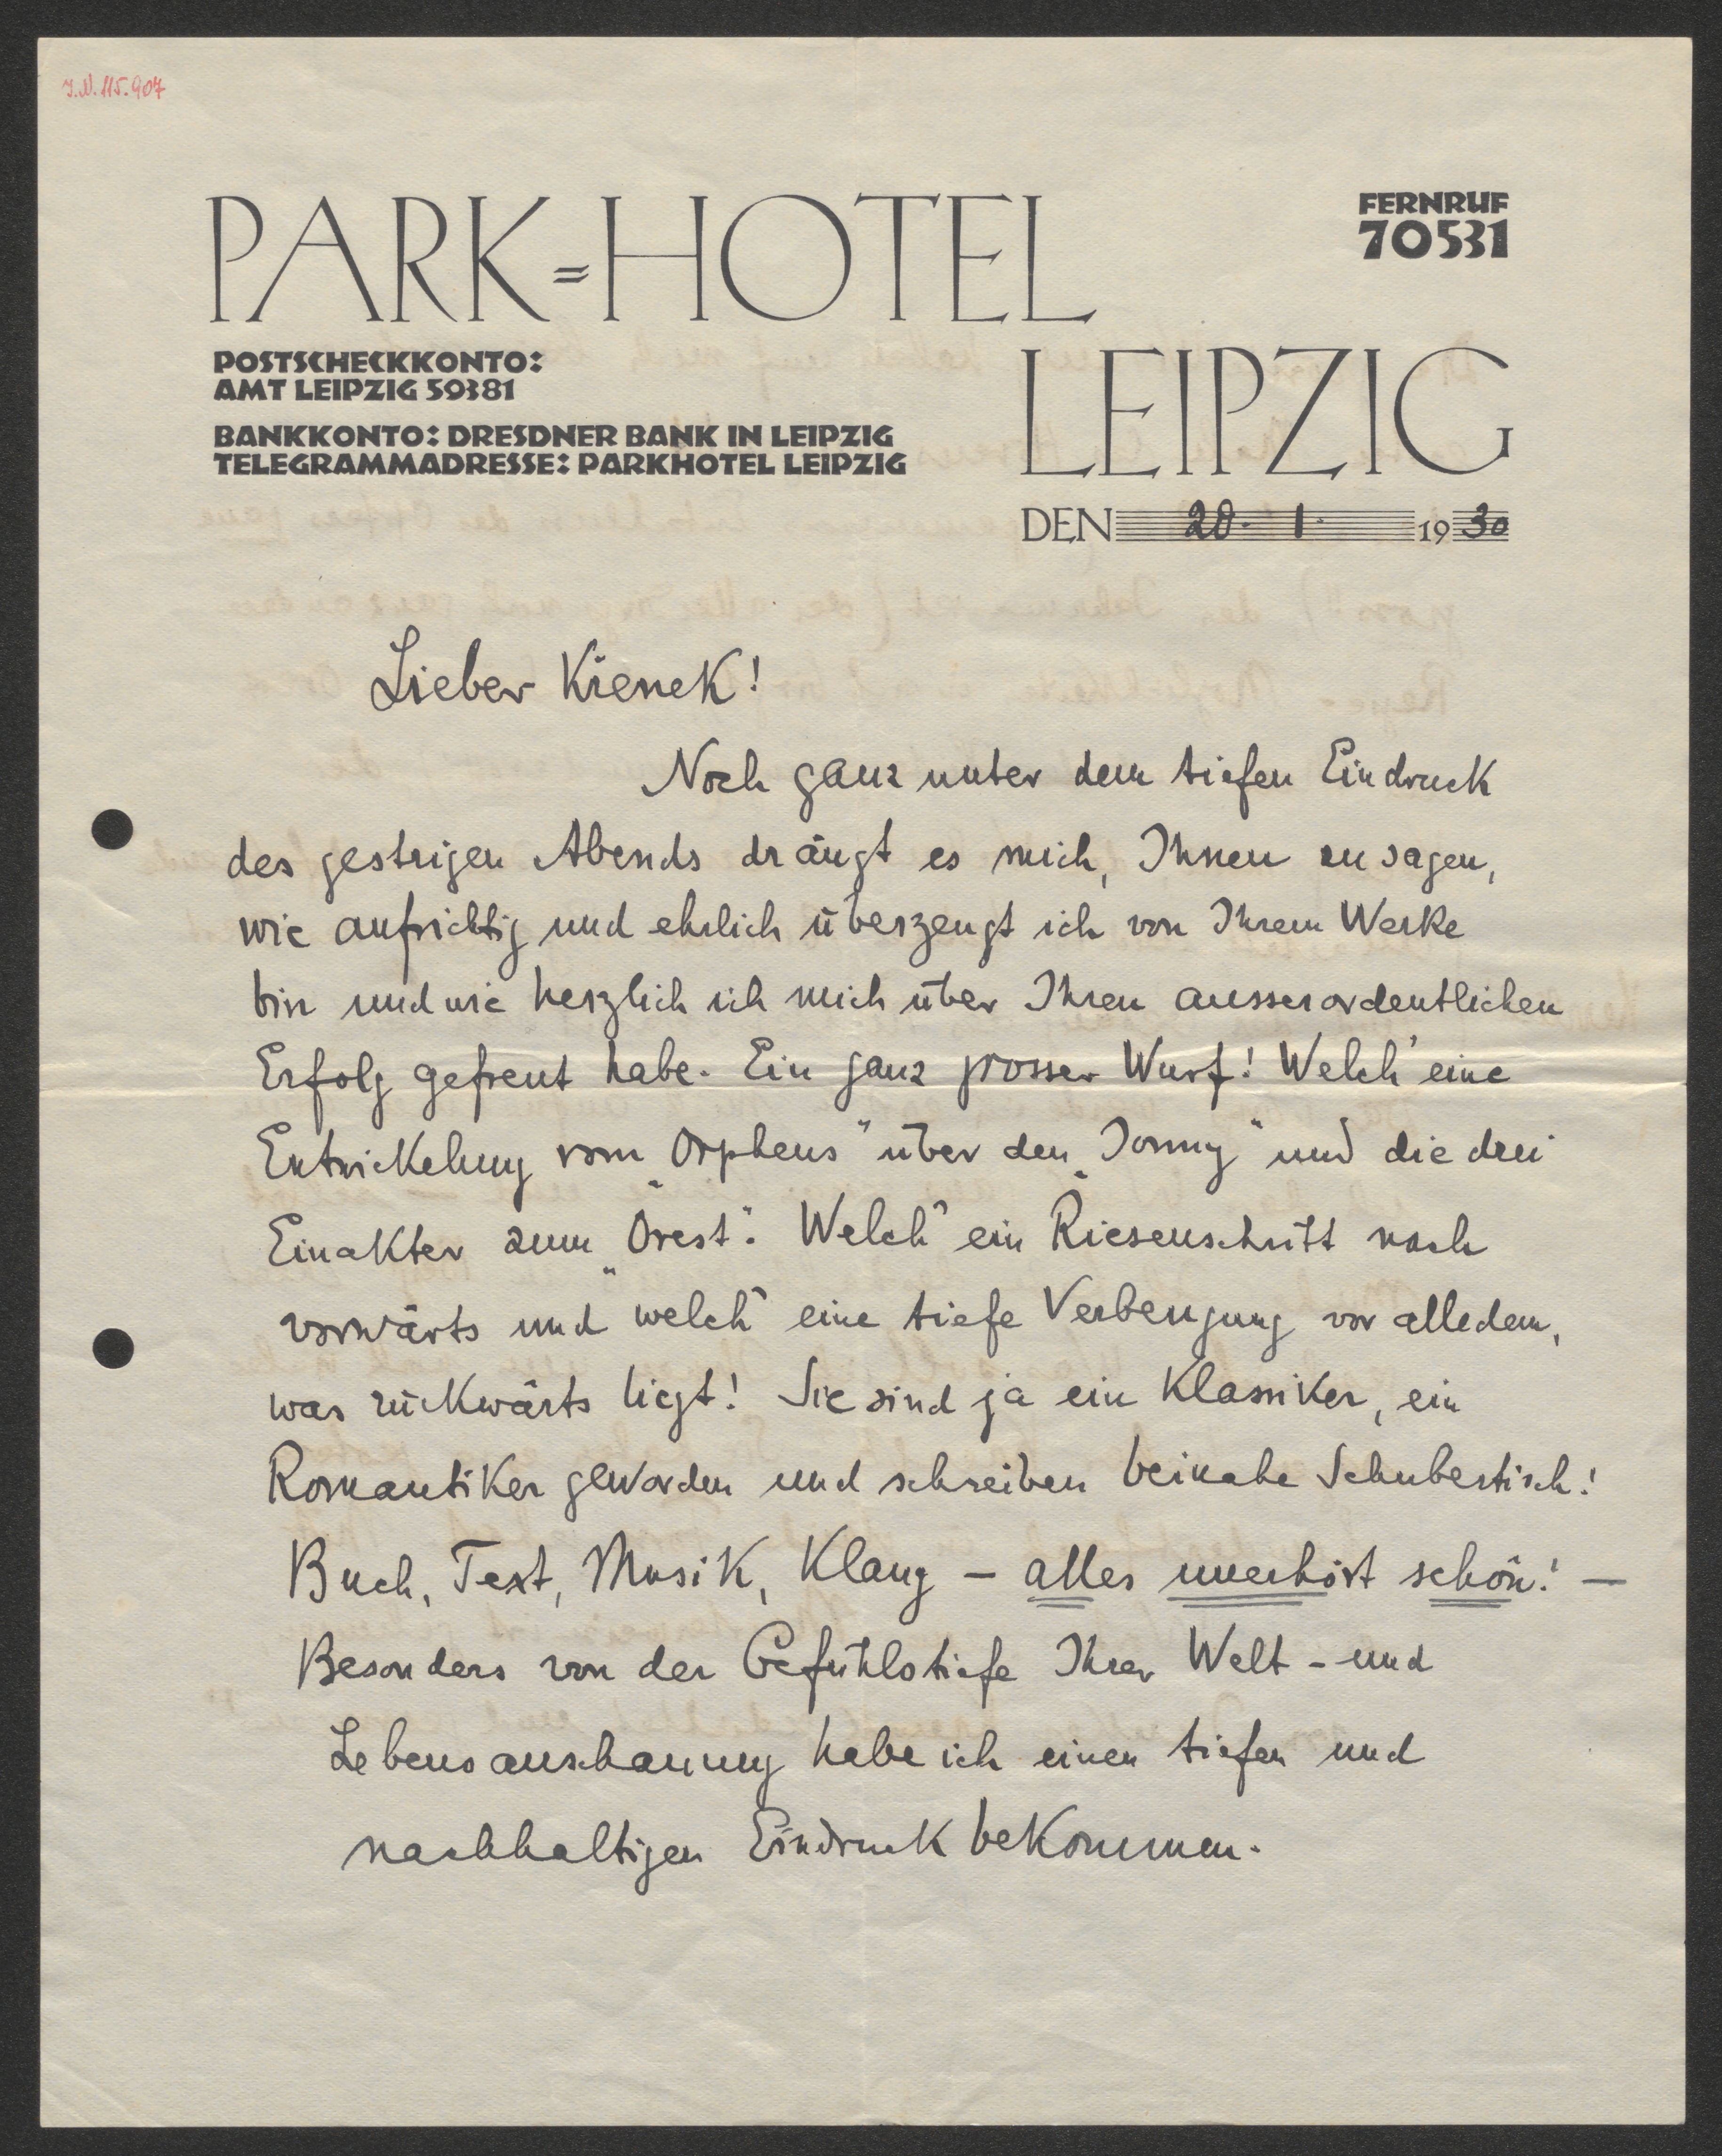 I.N. 115.907
PARK=HOTEL
FERNRUF
70531
LEIPZIG
POSTSCHECKKONTO:
AMT LEIPZIG 59381
BANKKONTO: DRESDNER BANK IN LEIPZIG
TELEGRAMMADRESSE: PARKHOTEL LEIPZIG
DEN 20. 1. 1930
Lieber Křenek!
Noch ganz unter dem tiefen Eindruck
des gestrigen Abends drängt es mich, Ihnen zu sagen,
wie aufrichtig und ehrlich überzeugt ich von Ihrem Werke
bin und wie herzlich ich mich über Ihren ausserordentlichen
Erfolg gefreut habe. Ein ganz grosser Wurf! Welch' eine
Entwickelung vom „Orpheus" über den „Jonny" und die drei
Einakter zum „Orest". Welch' ein Riesenschritt nach
vorwärts und welch' eine tiefe Verbeugung vor alledem,
was rückwärts liegt! Sie sind ja ein Klassiker, ein
Romantiker geworden und schreiben beinahe Schubertisch!
Buch, Text, Musik, Klang – alles unerhört schön! –
Besonders von der Gefühlstiefe Ihrer Welt- und
Lebensanschauung habe ich einen tiefen und
nachhaltigen Eindruck bekommen.